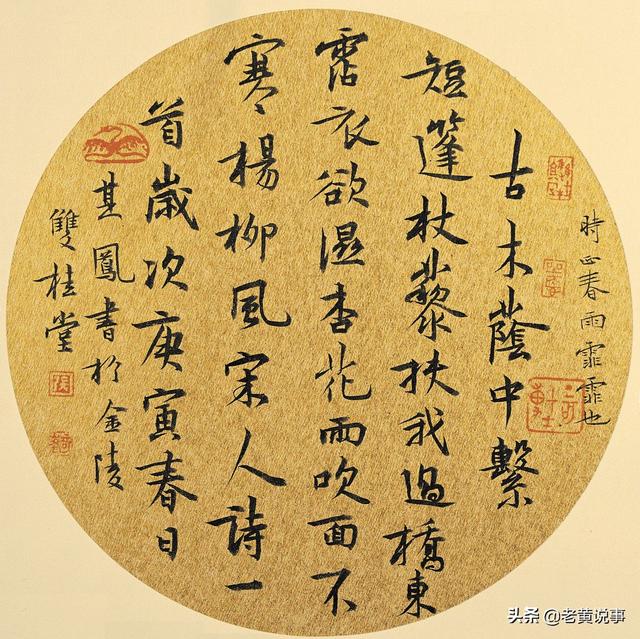 時正春雨霏霏也
古木蔭中繫
短篷杖藜扶我過橋東
霑衣欲濕杏花雨吹面不
寒楊柳風宋人詩一
首歲次庚寅春日
其鳳書於金陵
雙桂堂
头条 @老黄说事